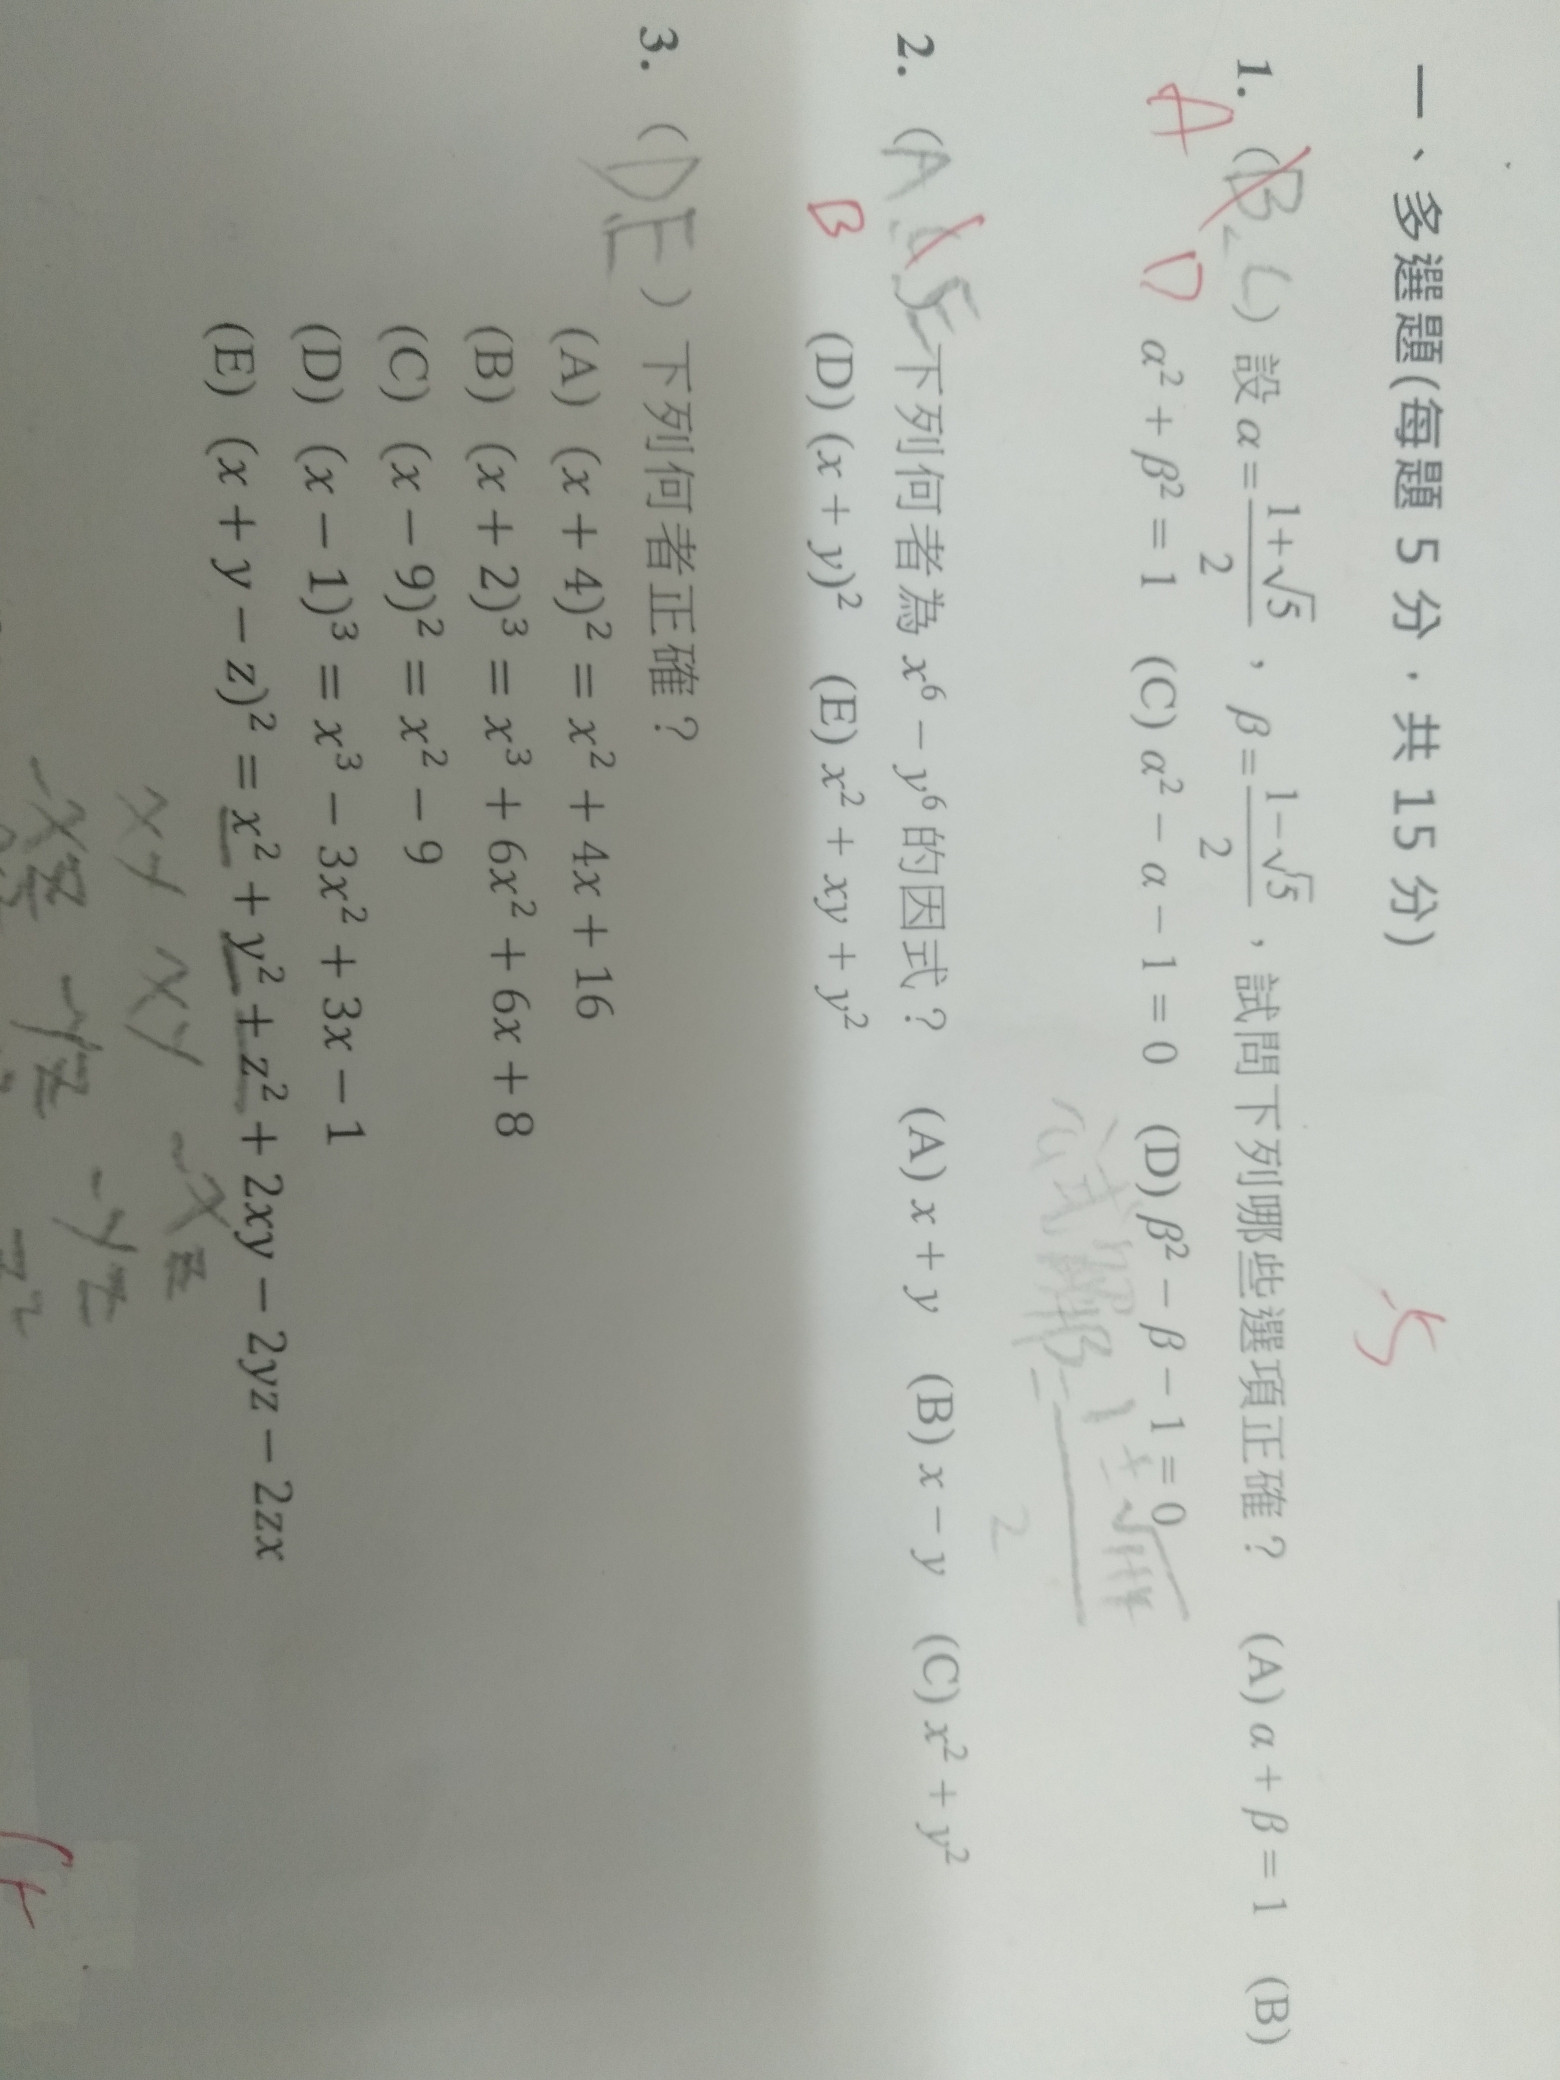 一、多選題(每題 5 分，共 15 分)
5
1. (B, C) 設 α = (1+√5)/2 ，β = (1−√5)/2 ，試問下列哪些選項正確？ (A) α + β = 1 (B)
A D α² + β² = 1 (C) α² − α − 1 = 0 (D) β² − β − 1 = 0
公式解
2
2. (A 下列何者為 x⁶ − y⁶ 的因式？ (A) x + y (B) x − y (C) x² + y²
B (D) (x + y)² (E) x² + xy + y²
3. (DE) 下列何者正確？
(A) (x + 4)² = x² + 4x + 16
(B) (x + 2)³ = x³ + 6x² + 6x + 8
(C) (x − 9)² = x² − 9
(D) (x − 1)³ = x³ − 3x² + 3x − 1
(E) (x + y − z)² = x² + y² + z² + 2xy − 2yz − 2zx
xy xy -xz -yz
-xz -yz z²